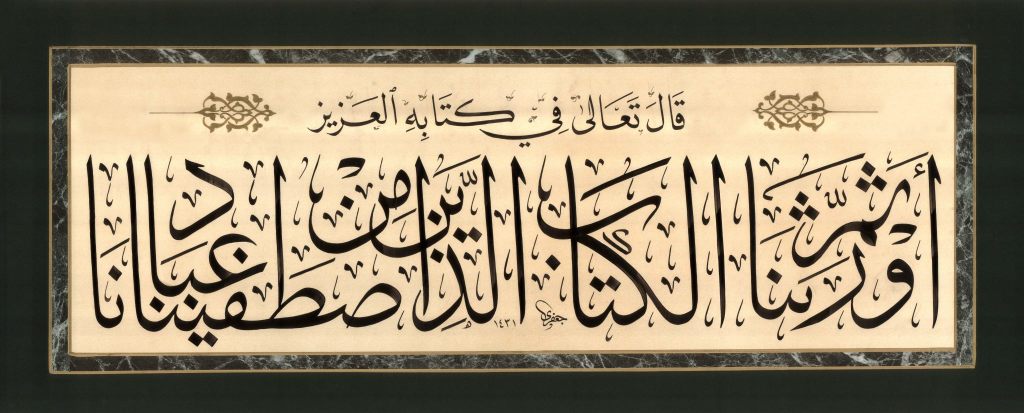 قَالَ تَعَالىٰ فِيْ كِتَابِهِ ٱلعَزِيزِ
ثُمَّ أَوْرَثْنَا الْكِتَابَ الَّذِينَ اصْطَفَيْنَا مِنْ عِبَادِنَا
جعفري ١٤٣١هـ